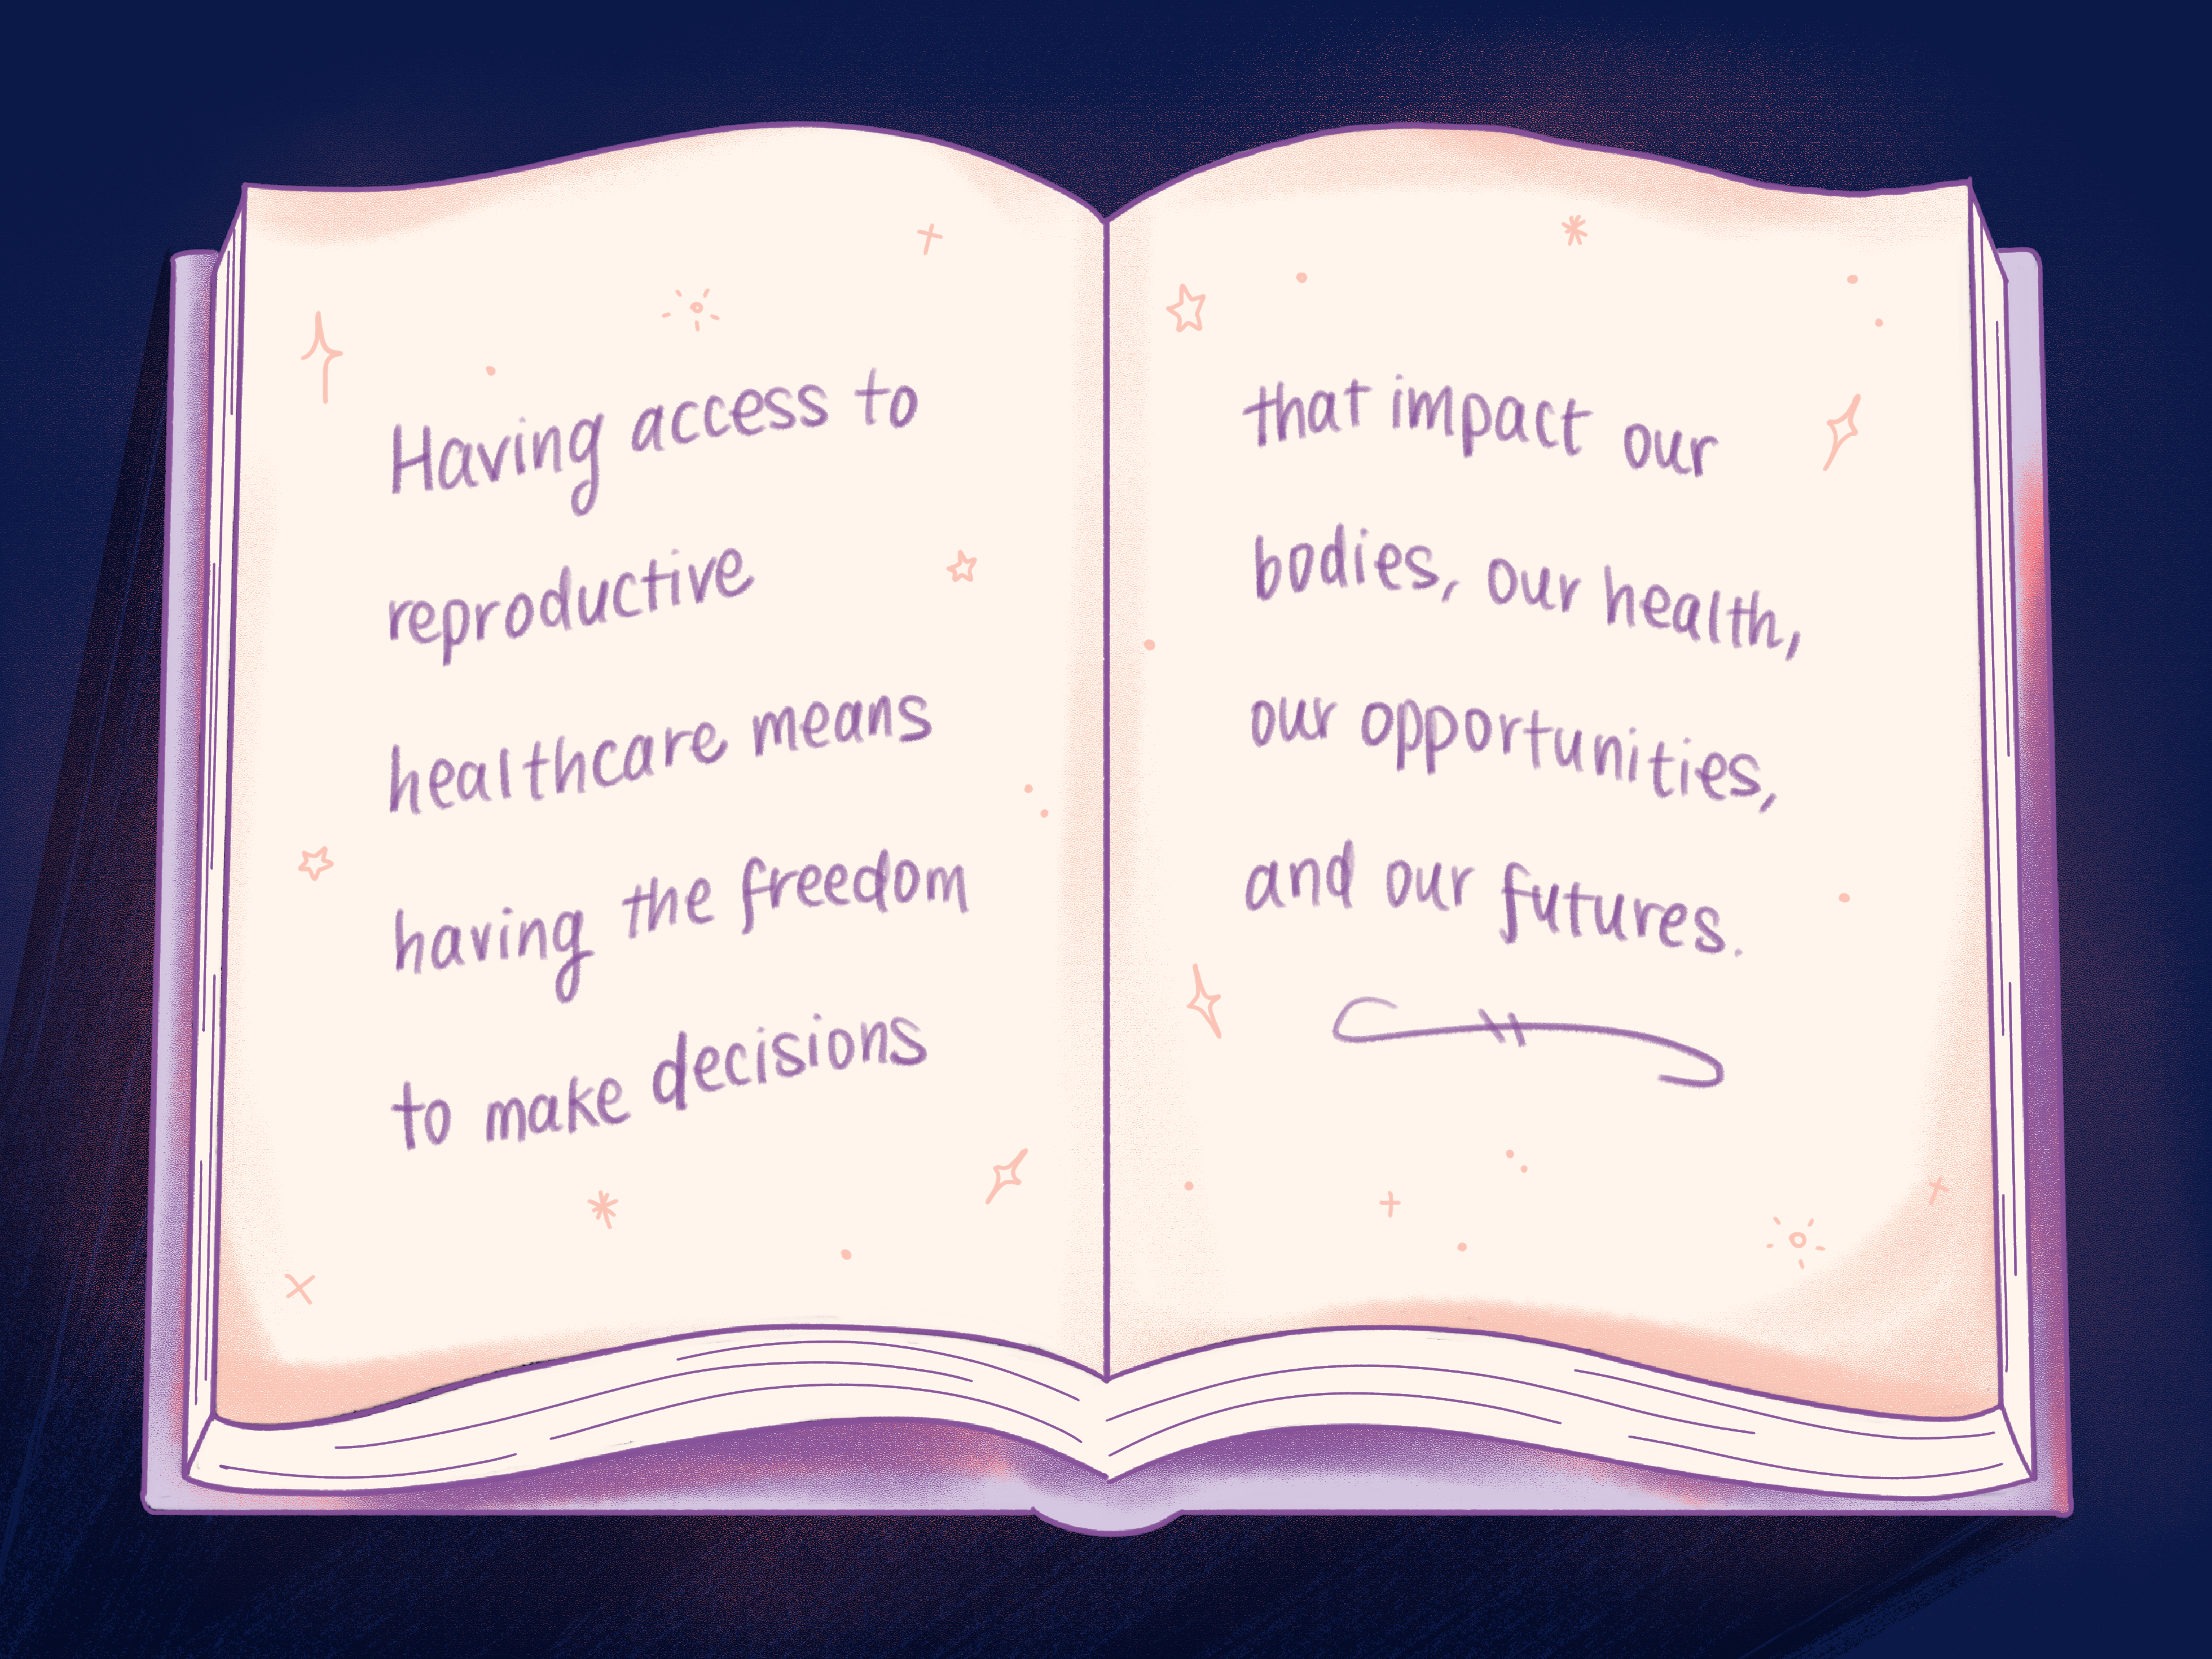 Having access to
reproductive
healthcare means
having the freedom
to make decisions
that impact our
bodies, our health,
our opportunities,
and our futures.